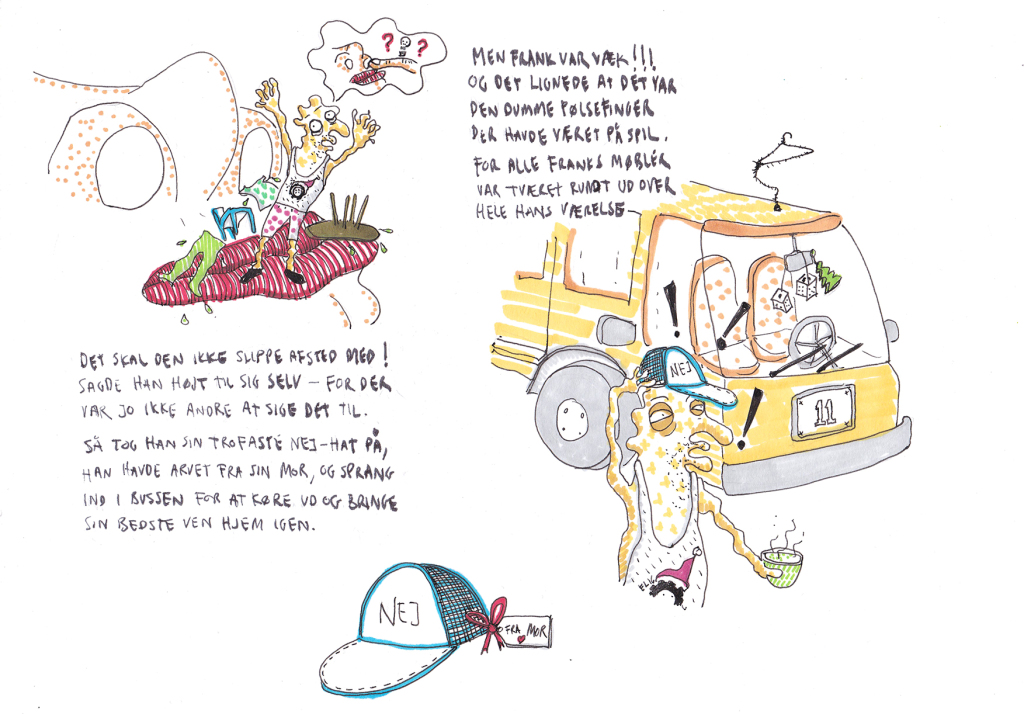 ? ?
MEN FRANK VAR VÆK!!!
OG DET LIGNEDE AT DET VAR
DEN DUMME PØLSEFINGER
DER HAVDE VÆRET PÅ SPIL.
FOR ALLE FRANKS MØBLER
VAR TVÆRET RUNDT UD OVER
HELE HANS VÆRELSE
DET SKAL DEN IKKE SLIPPE AFSTED MED!
SAGDE HAN HØJT TIL SIG SELV – FOR DER
VAR JO IKKE ANDRE AT SIGE DET TIL.
SÅ TOG HAN SIN TROFASTE NEJ-HAT PÅ,
HAN HAVDE ARVET FRA SIN MOR, OG SPRANG
IND I BUSSEN FOR AT KØRE UD OG BRINGE
SIN BEDSTE VEN HJEM IGEN.
! ! !
NEJ
11
NEJ
FRA MOR